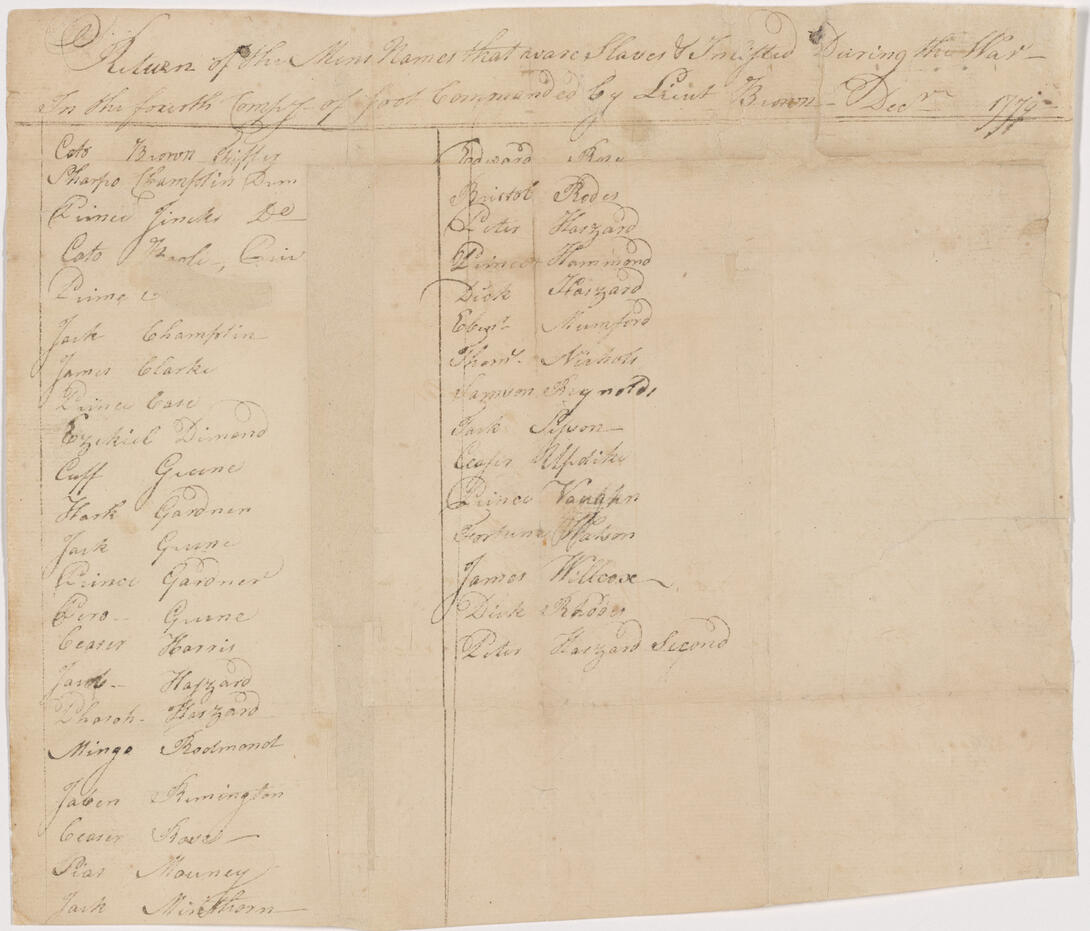 A Return of the Mens Names that ware Slaves & Inlisted During the War
In the fourth Compy of foot Commanded by Lieut Brown Decr 1779
Cato Brown fiffer
Sharpo Champlin Drum
Prince Jincks Do
Cato
Prince
Jack Champlin
James Clarke
Prince Case
Ezekiel Dimond
Cuff Greene
Hark Gardner
Jack Greene
Prince Gardner
Cero Greene
Ceaser Harris
Jacob Haszard
Pharoh Haszard
Mingo Rodmond
Jaben Rimington
Ceaser Rose
Pias Mouney
Jack Minthorn
Edward Rose
Bristol Rodes
Peter Haszard
Prince Hammond
Dick Haszard
Ebenr Mumford
Thoms Nichols
Samson Reynolds
Jack Sisson
Ceaser Updike
Prince Vaughn
Fortune Watson
James Willcox
Dick Rhodes
Peter Haszard Second